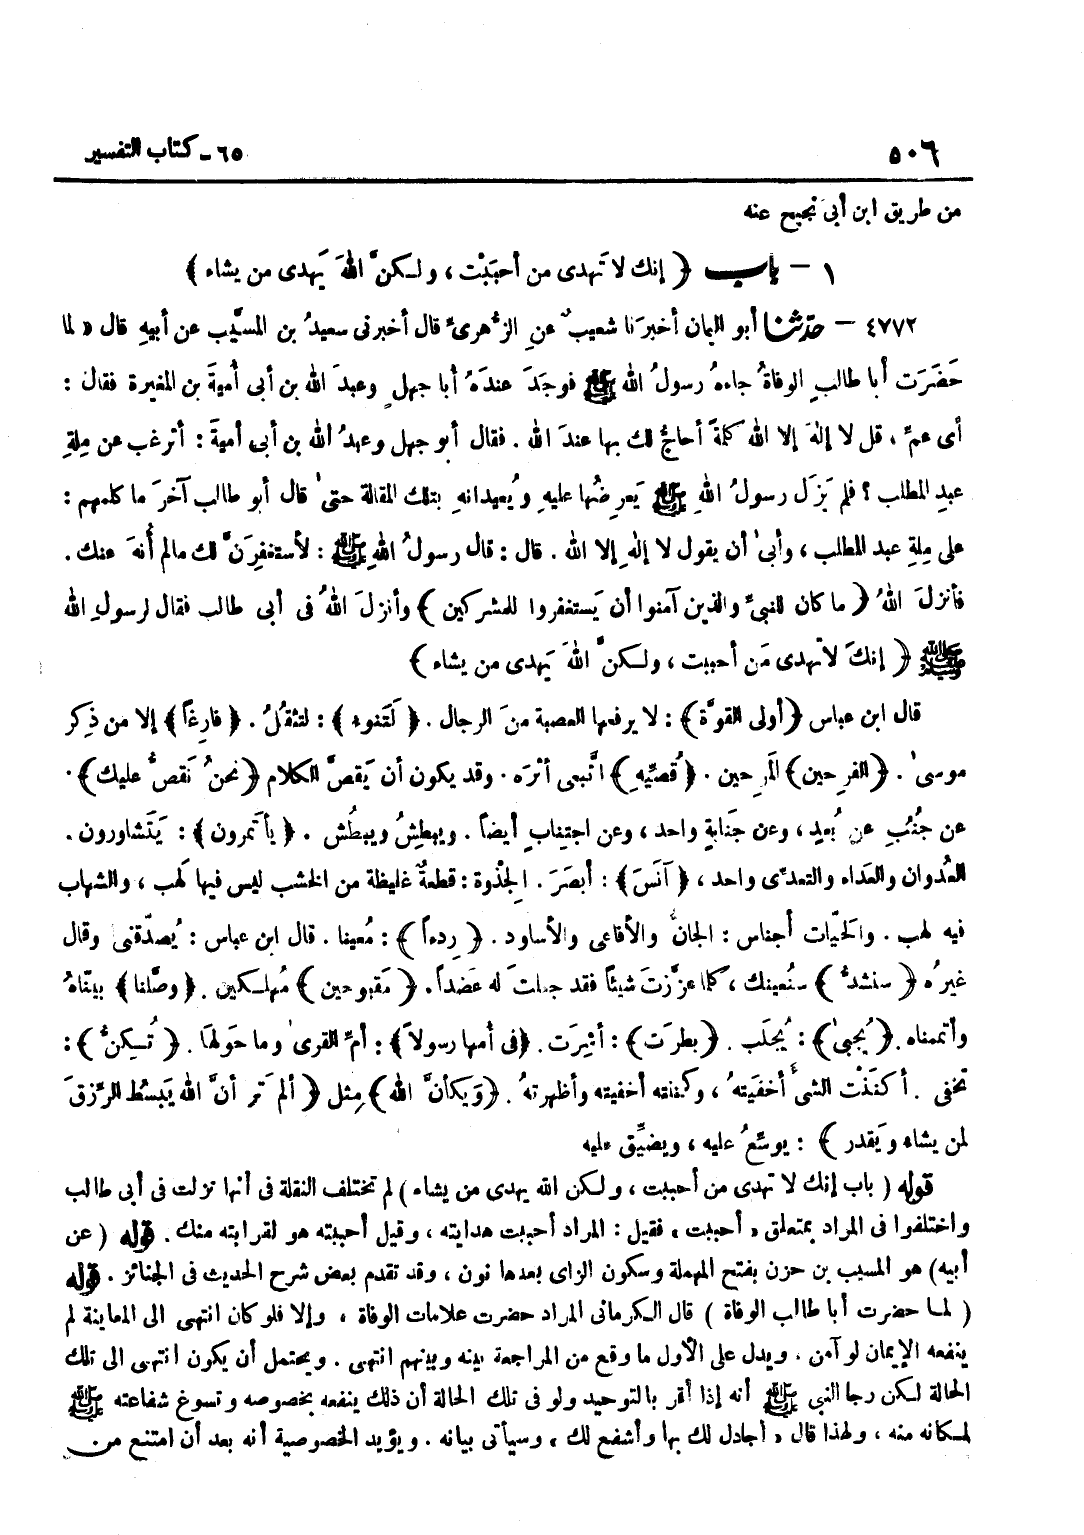 ٥٠٦
٦٥ - كتاب التفسير
من طريق ابن أبى نجيح عنه
١ - باب ﴿ إنك لا تَهدى من أحبَبْت ، ولـكنَّ اللهَ يَهدى من يشاء ﴾
٤٧٧٢ - حدّثنا أبو اليمان أخبرَنا شعيبٌ عنِ الزُّهرىِّ قال أخبرنى سعيدُ بن المسيَّب عن أبيهِ قال « لما
حَضَرَت أبا طالبٍ الوفاةُ جاءهُ رسولُ الله ﷺ فوجَدَ عندَهُ أبا جهلٍ وعبدَ الله بن أبى أميةَ بن المغيرة فقال :
أى عمِّ ، قل لا إلهَ إلا الله كلمةً أحاجُّ لك بها عندَ الله . فقال أبو جهل وعبدُ الله بن أبى أميةَ : أترغب عن مِلةِ
عبدِ المطلب ؟ فلم يَزَل رسولُ اللهِ ﷺ يَعرِضُها عليهِ ويُعيدانهِ بتلك المقالة حتىٰ قال أبو طالب آخرَ ما كلمهم :
على مِلةِ عبد المطلب ، وأبىٰ أن يقول لا إلٰهِ إلا الله . قال : قال رسولُ اللهِ ﷺ : لأستغفِرَنَّ لك مالم أُنهَ عنك .
فأنزلَ اللهُ ﴿ ما كان للنبىِّ والذين آمنوا أن يَستغفروا للمشركين ﴾ وأنزلَ اللهُ فى أبى طالب فقال لرسولِ الله
ﷺ ﴿ إنكَ لا تهدى مَن أحببت ، ولـكنَّ اللهَ يَهدى من يشاء ﴾
قال ابن عباس ﴿أولى القوَّة﴾ : لا يرفعها العصبة منَ الرجال . ﴿ لَتَنوء ﴾ : لتثقلُ . ﴿ فارِغاً ﴾ إلا من ذِكر
موسىٰ . ﴿ الفرِحين ﴾ المرِحين . ﴿ قُصيِّهِ ﴾ اتَّبعى أثرَه . وقد يكون أن يَقصَّ الكلام ﴿نحنُ نَقصُّ عليك﴾ .
عن جُنُبٍ عن بُعدٍ ، وعن جَنابةٍ واحد ، وعن اجتنابٍ أيضاً . ويبطِشُ ويبطُش . ﴿ يأتمرون ﴾ : يَتَشاورون .
العُدوان والعَداء والتعدِّى واحد ، ﴿ آنَسَ ﴾ : أبصَرَ . الجِذوة : قطعةٌ غليظة من الخشب ليس فيها لَهب ، والشهاب
فيه لهب . والحَيّات أجناس : الجانُّ والأفاعى والأساود . ﴿ رِدءاً ﴾ : مُعينا . قال ابن عباس : يُصدّقنى وقال
غيرُه ﴿ سنشدُّ ﴾ سنُعينك ، كلما عزَّزتَ شيئاً فقد جعلتَ له عَضداً. ﴿ مَقبوحين ﴾ مُهلـكين . ﴿ وصَّلنا ﴾ بيَّناهُ
وأتممناه . ﴿يُجبىٰ﴾ : يُجلَب . ﴿بطرَت﴾ : أشِرَت . ﴿فى أمها رسولاً﴾ : أمُّ القرىٰ وما حَولها . ﴿ تُسكِنُّ ﴾ :
تخفى . أكنَنْت الشىءَ أخفَيَتهُ ، وكننته أخفيته وأظهرتهُ . ﴿وَيكأنَّ الله﴾ مِثل ﴿ ألم ترَ أنَّ الله يَبسُط الرِّزقَ
لمن يشاء ويَقدر ﴾ : يوسِّعُ عليه ، ويضيِّق عليه
قوله ( باب إنك لا تهدى من أحببت ، ولـكن الله يهدى من يشاء ) لم تختلف النقلة فى أنها نزلت فى أبى طالب
واختلفوا فى المراد بمتعلق « أحببت » فقيل : المراد أحببت هدايته ، وقيل أحببته هو لقرابته منك . قوله ( عن
أبيه) هو المسيب بن حزن بفتح المهملة وسكون الزاى بعدها نون ، وقد تقدم بعض شرح الحديث فى الجنائز . قوله
( لمـا حضرت أبا طالب الوفاة ) قال الـكرمانى المراد حضرت علامات الوفاة ، وإلا فلو كان انتهى الى المعاينة لم
ينفعه الإيمان لو آمن ، ويدل على الأول ما وقع من المراجعة بينه وبينهم انتهى . ويحتمل أن يكون انتهى الى تلك
الحالة لكن رجا النبى ﷺ أنه إذا أقر بالتوحيد ولو فى تلك الحالة أن ذلك ينفعه بخصوصه وتسوغ شفاعته ﷺ
لمـكانه منه ، ولهذا قال « أجادل لك بها وأشفع لك » وسيأتى بيانه . ويؤيد الخصوصية أنه بعد أن امتنع من